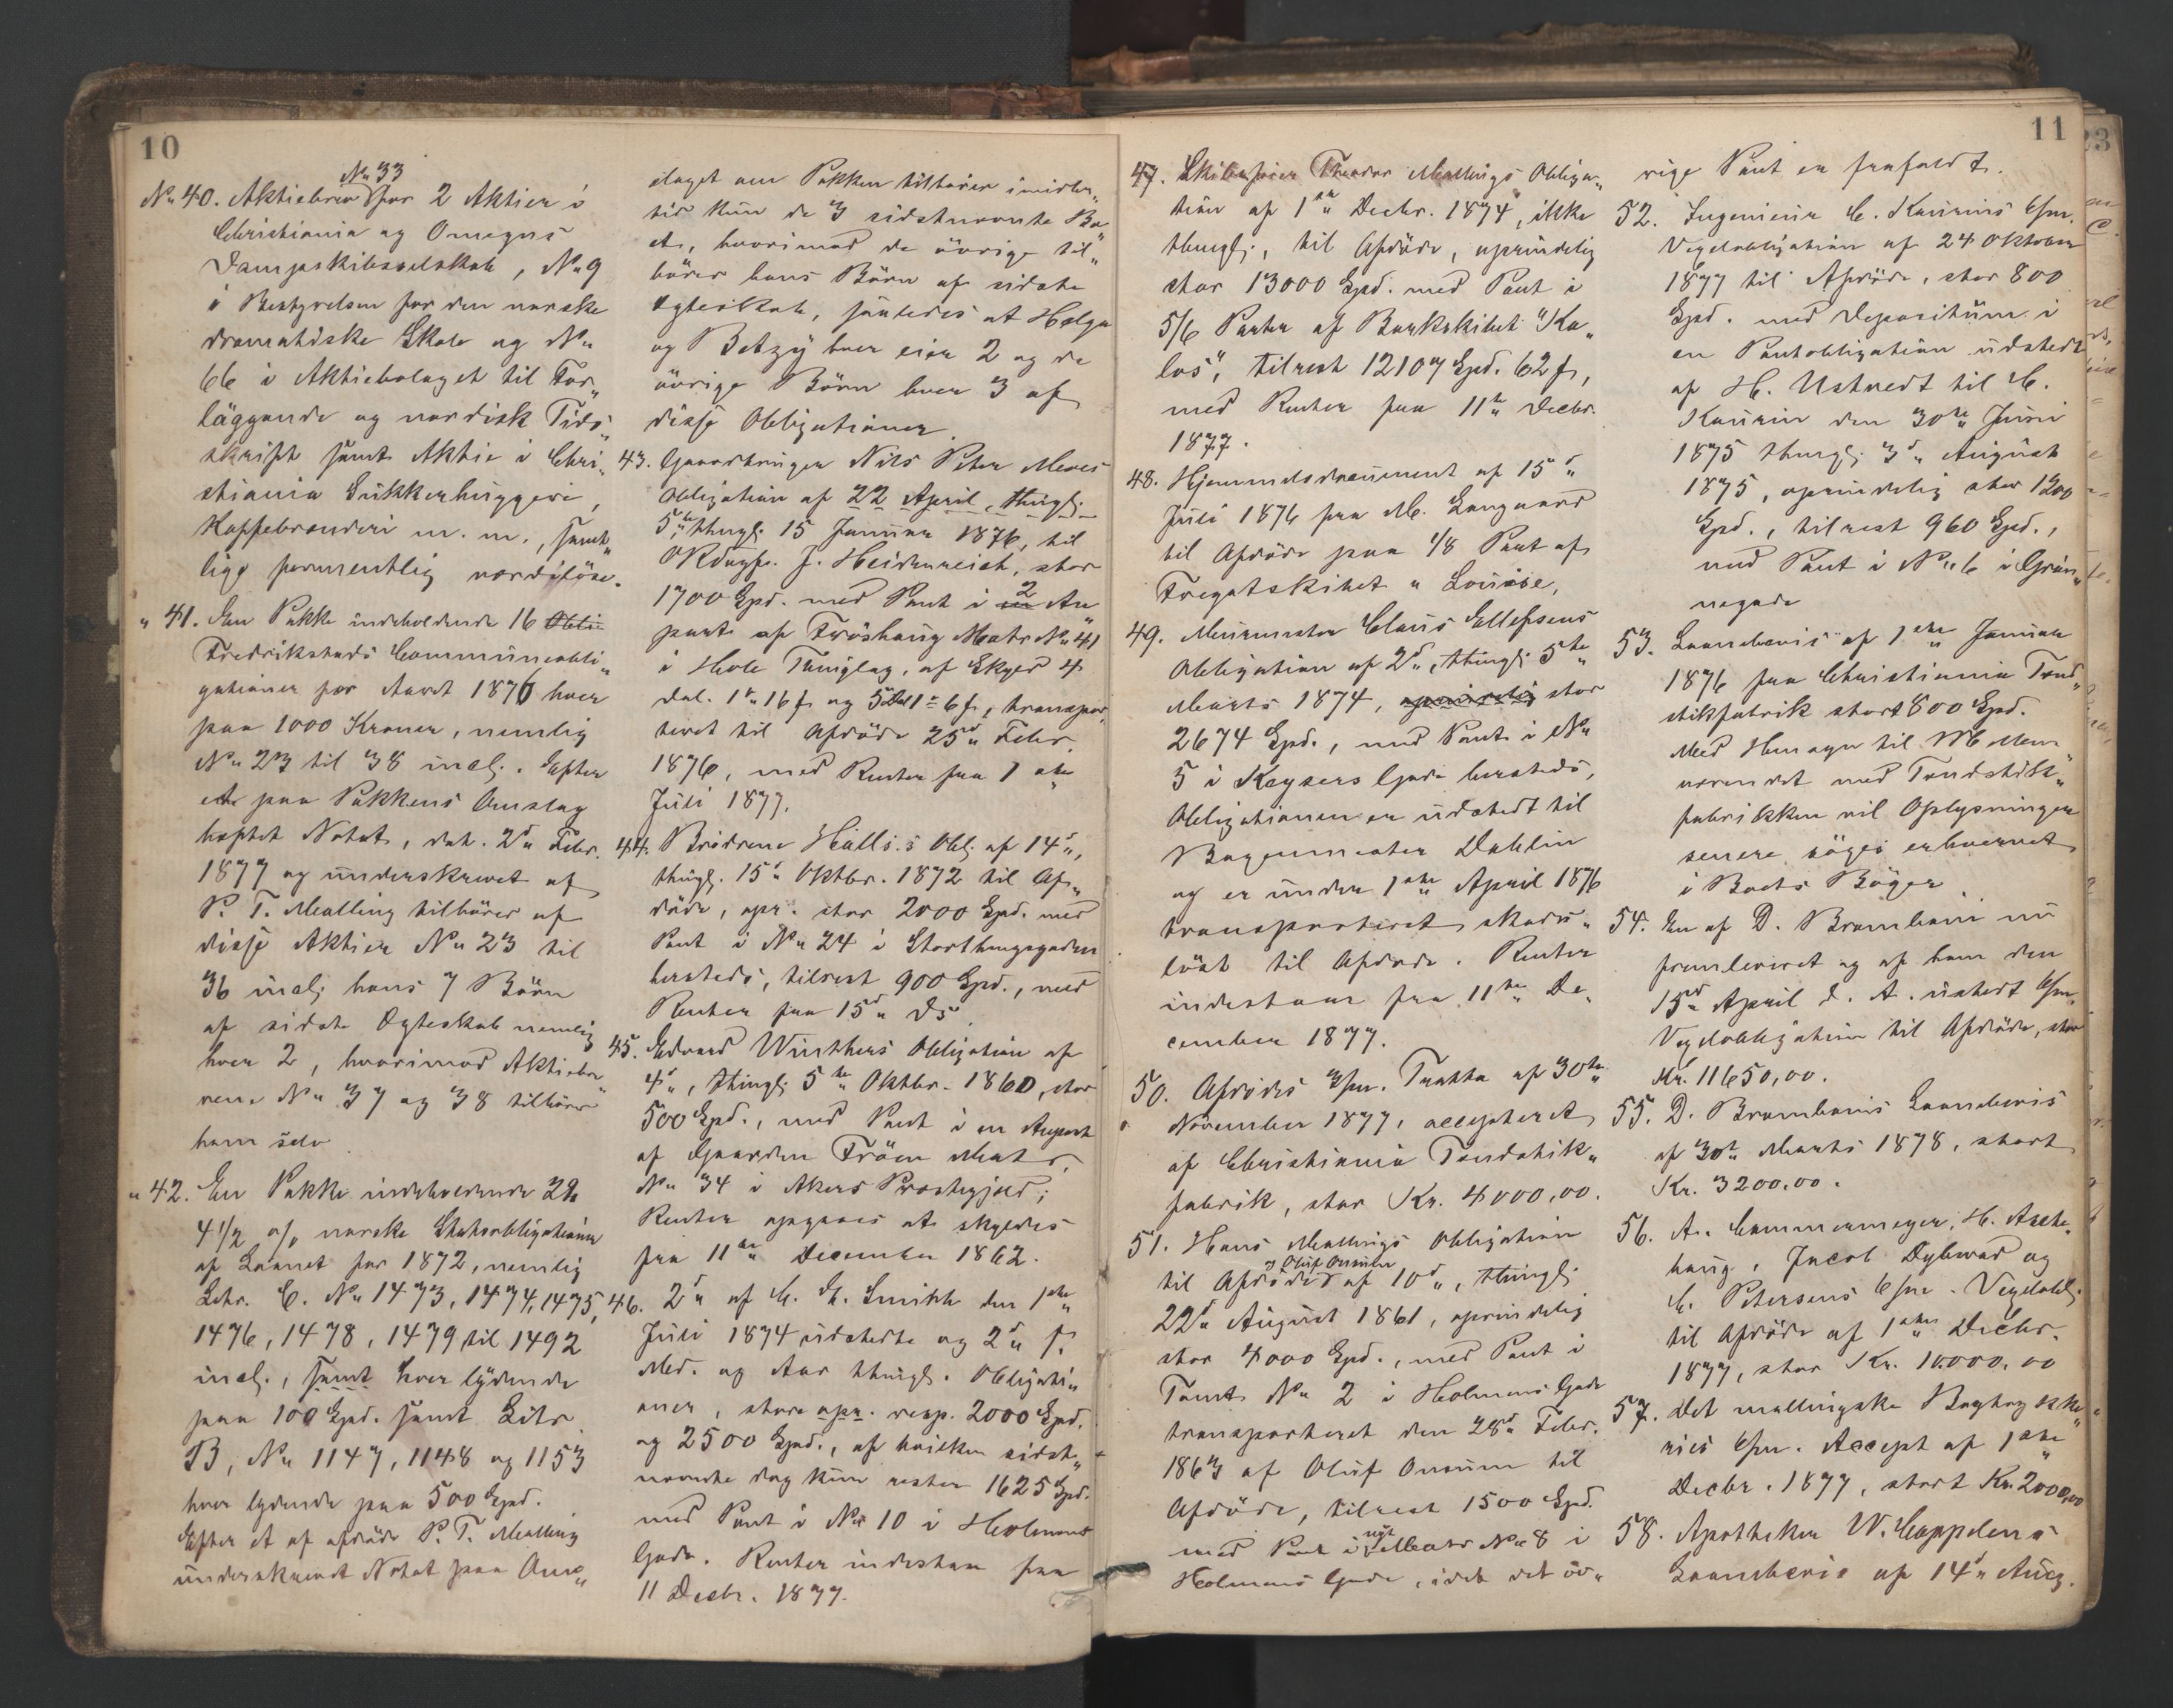 10
No 33
No 40. Aktiebrev for 2 Aktier i
Christiania og Omegns
Dampskibsselskab, No 9
i Bestyrelsen for den norske
dramatiske Skole og No
66 i Aktiebolaget til For„
läggande og nordisk Tids„
skrift samt Aktie i Chri„
stiania Sukkerhuggeri,
Kaffebrænderi m. m., samt„
lige formentlig værdiløse.
" 41. En Pakke indeholdende 16
Fredrikstads Communeobli„
gationer for Aaret 1876 hver
paa 1000 Kroner, nemlig
No 23 til 38 incl. Efter
et paa Pakkens Omslag
heftet Notat, dat. 2d Febr.
1877 og underskrevet af
P. T. Malling tilhører af
disse Aktier No 23 til
36 incl. hans 7 Börn
af sidste Ægteskab nemlig
hver 2, hvorimod Aktiebre„
vene No 37 og 38 tilhörer
ham selv
" 42. En Pakke indeholdende
4 1/2 o/o norske Statsobligationer
af Laanet for 1872, nemlig
Litr. C. No 1473, 1474, 1475,
1476, 1478, 1479 til 1492
incl., samt hver lydende
paa 100 Spd. samt Litr.
B, No 1147, 1148 og 1153
hver lydende paa 500 Spd.
Efter et af afdöde P. T. Malling
underskrevet Notat paa Oms„
slaget om Pakken tilhörer imidler„
tid kun de 3 sidstnævnte Bo„
et, hvorimod de övrige til„
hörer hans Börn af sidste
Ægteskab, saaledes at Helga
og Betzy hver eier 2 og de
övrige Börn hver 3 af
disse Obligationer.
43. Gaardbruger Nils Peter Moves
Obligation af 22 April, thingl.
5te, thingl. 15 Januar 1876, til
J. Heidenreich, stor
1700 Spd. med Pant i 2 An„
parter af Fröshaug Matr No 41
i Hole Thinglag, af Skyld 4
Dal. 1 " 16 s og 5 Dal 1 " 6 s, transpor„
teret til Afdöde 25d Febr.
1876, med Renter fra 1ste
Juli 1877.
44. Brödrene Halls.s Obl. af 14d,
thingl. 15d Oktbr. 1872 til Af„
döde, opr. stor 2000 Spd. med
Pant i No 24 i Storthingsgaden
hersteds, tilrest 900 Spd., med
Renter fra 15d Ds
45. Edvard Winthers Obligation af
4d, thingl. 5te Oktbr. 1860, stor
500 Spd., med Pant i en Anpart
af Gaarden Fröen Matr.
No 34 i Akers Præstegjeld;
Renter opgives at skyldes
fra 11te December 1862.
46. 2d af C. H. Smith den 1ste
Juli 1874 udstedte og 2d s.
Md. og Aar thingl. Obligati„
oner, store opr. resp. 2000 Spd.
og 2500 Spd., af hvilken sidst„
nævnte dog kun rester 1625 Spd.
med Pant i No 10 i Holmens
Gade. Renter indestaar fra
11 Decbr. 1877.
11
47. Skibsreier Theodor Mallings Obliga„
tion af 1ste Decbr. 1874, ikke
thingl., til Afdöde, oprindelig
stor 13000 Spd. med Pant i
5/6 Parter af Barkskibet "Ka„
los", tilrest 12107 Spd. 62 s,
med Renter fra 11te Decbr.
1877.
48. Hjemmelsdocument af 15d
Juli 1876 fra M. Langaard
til Afdöde paa 1/8 Part af
Fregatskibet " Louise,
49. Murmester Claus Ellefsens
Obligation af 2d, thingl. 5te
Marts 1874, stor
2674 Spd., med Pant i No
5 i Keysers Gade hersteds,
Obligationen er udstedt til
Bagermester Dahlin
og er under 1ste April 1876
transporteret skades„
löst til Afdöde. Renter
indestaar fra 11te De„
cember 1877.
50. Afdödes Tratta af 30te
November 1877, accepteret
af Christiania Tændstik„
fabrik, stor Kr. 4000,00.
51. Hans Mallings Obligation
og Oluf Onsum
til Afdöde af 10d, thingl.
22d August 1861, oprindelig
stor 4000 Spd., med Pant i
Tomt No 2 i Holmens Gade
transporteret den 28d Febr.
1863 af Oluf Onsum til
Afdöde, tilrest 1500 Spd.
med Pant i nyt Matr No 8 i
Holmens Gade, idet det öv„
rige Pant er frafaldt.
52. Ingeniör C. Kaurins
Vexelobligation af 24 Oktober
1877 til Afdöde, stor 800
Spd. med Depositum i
en Pantobligation udstedt
af H. Ustvedt til C.
Kaurin den 30te Juni
1875 thingl. 3d August
1875, oprindelig stor 1200
Spd., tilrest 960 Spd.,
med Pant i No 6 i Grön„
negade
53. Laanebevis af 1ste Januar
1876 fra Christiania Tænd„
stikfabrik stort 800 Spd.
Med Hensyn til Mellem„
værendet med Tændstik„
fabrikken vil Oplysninger
senere söges erhvervet
i Boets Böger.
54. En af D. Brambani nu
fremleveret og af ham den
15d April d. A. udstedt
Vexelobligation til Afdöde, stor
Kr. 11650,00.
55. D. Brambanis Laanebevis
af 30te Marts 1878, stort
Kr. 3200.00.
56. A. Cammermeyer, H. Asche„
houg, Jacob Dybwad og
C. Petersens Vexelobl.
til Afdöde af 1ste Decbr.
1877, stor Kr. 10.000.00
57. Det mallingske Bogtrykke„
ries Accept af 1ste
Decbr. 1877, stort Kr. 2000,00
58. Apotheker W. Coppelens
Laanebevis af 14d Aug.
23